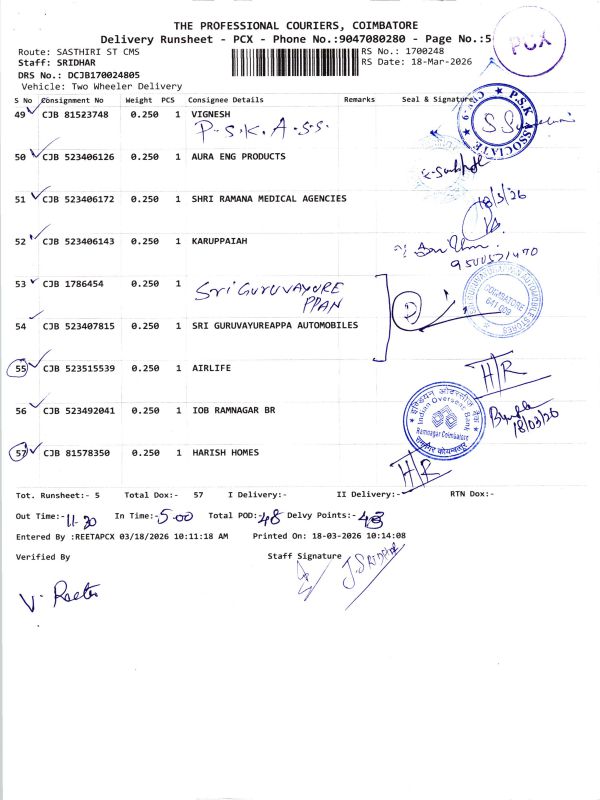 THE PROFESSIONAL COURIERS, COIMBATORE
Delivery Runsheet - PCX - Phone No.:9047080280 - Page No.:5
PCX
Route: SASTHIRI ST CMS
RS No.: 1700248
Staff: SRIDHAR
RS Date: 18-Mar-2026
DRS No.: DCJB170024805
Vehicle: Two Wheeler Delivery
S No Consignment No Weight PCS Consignee Details Remarks Seal & Signature
49 CJB 81523748 0.250 1 VIGNESH
P.S.K.A.S.S.
P.S.K ASSOCIATE
50 CJB 523406126 0.250 1 AURA ENG PRODUCTS
51 CJB 523406172 0.250 1 SHRI RAMANA MEDICAL AGENCIES
18/3/26
52 CJB 523406143 0.250 1 KARUPPAIAH
53 CJB 1786454 0.250 1
Sri GURUVAYURE
PPAN
COIMBATORE
641 009
54 CJB 523407815 0.250 1 SRI GURUVAYUREAPPA AUTOMOBILES
55 CJB 523515539 0.250 1 AIRLIFE
H/R
56 CJB 523492041 0.250 1 IOB RAMNAGAR BR
इण्डियन ओवरसीज बैंक
Indian Overseas Bank
Ramnagar Coimbatore
रामनगर कोयम्बतूर
18/03/26
57 CJB 81578350 0.250 1 HARISH HOMES
H/R
Tot. Runsheet:- 5 Total Dox:- 57 I Delivery:- II Delivery:- RTN Dox:-
Out Time:- 11-30 In Time:- 5.00 Total POD:- 48 Delvy Points:- 43
Entered By :REETAPCX 03/18/2026 10:11:18 AM Printed On: 18-03-2026 10:14:08
Verified By Staff Signature
J.SRIDHAR
V. Reeta